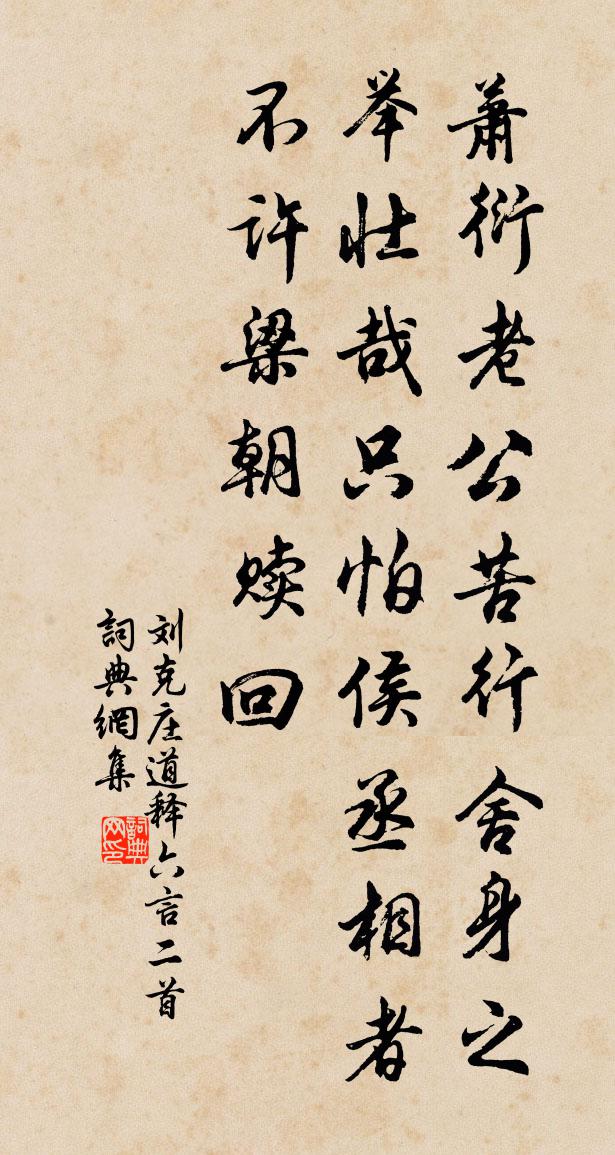 萧衍老公苦行舍身之
举壮哉只怕侯丞相者
不许梁朝赎回
刘克庄道释六言二首
詞典網集
詞典網印